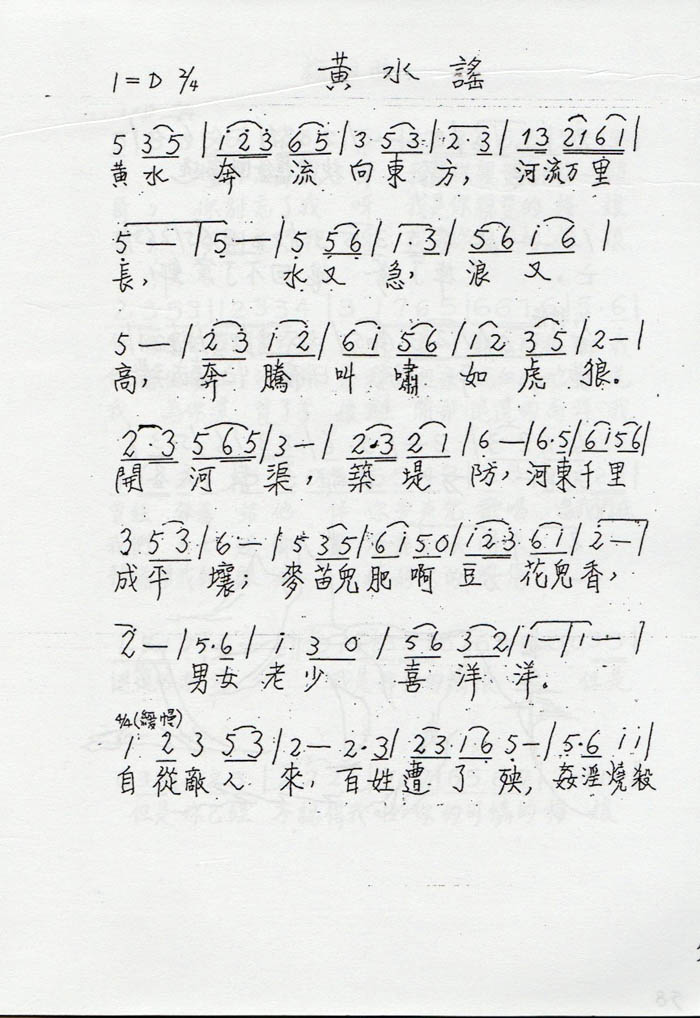 黃水謠
1=D 2/4
5 35 | i23 65 | 3· 53· | 2·3 | 13 2161 |
黃水 奔 流 向東 方, 河流万里
5 — | 5 — | 5 56 | i·3 | 56 i6 |
長, 水又 急, 浪 又
5 — | 23 i2 | 6i 56 | i2 35 | 2 — |
高, 奔 騰 叫 嘯 如 虎 狼。
2·3 565 | 3 — | 2·3 21 | 6 — | 6·5 | 6i56 |
開 河 渠, 築 堤 防, 河東千里
3 53 | 6 — | 5 35 | 6i50 | i23 6i | 2 — |
成平 壤; 麥苗兒肥啊 豆 花兒香,
2 — | 5·6 | i· 30 | 56 32 | i — | i — |
男女 老 少 喜 洋 洋。
4/4 (緩慢)
1 23 53 | 2 — 2·3 | 23·16 5 — | 5·6 ii |
自從敵人 來, 百姓遭 了 殃, 姦淫燒殺
58